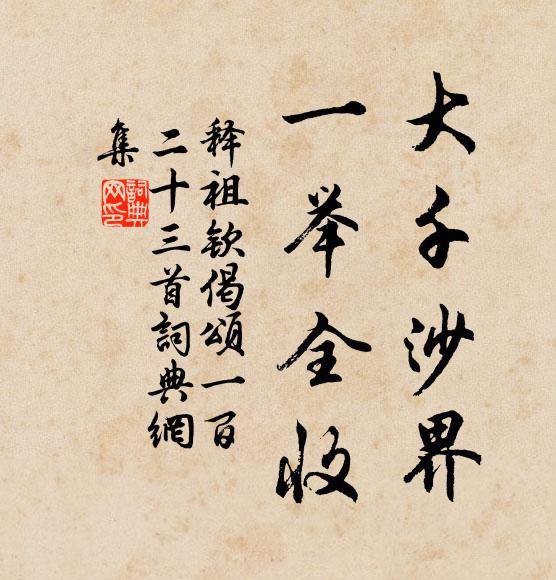 大千沙界
一举全收
释祖钦偈頌一百
二十三首詞典網
集
詞典网印